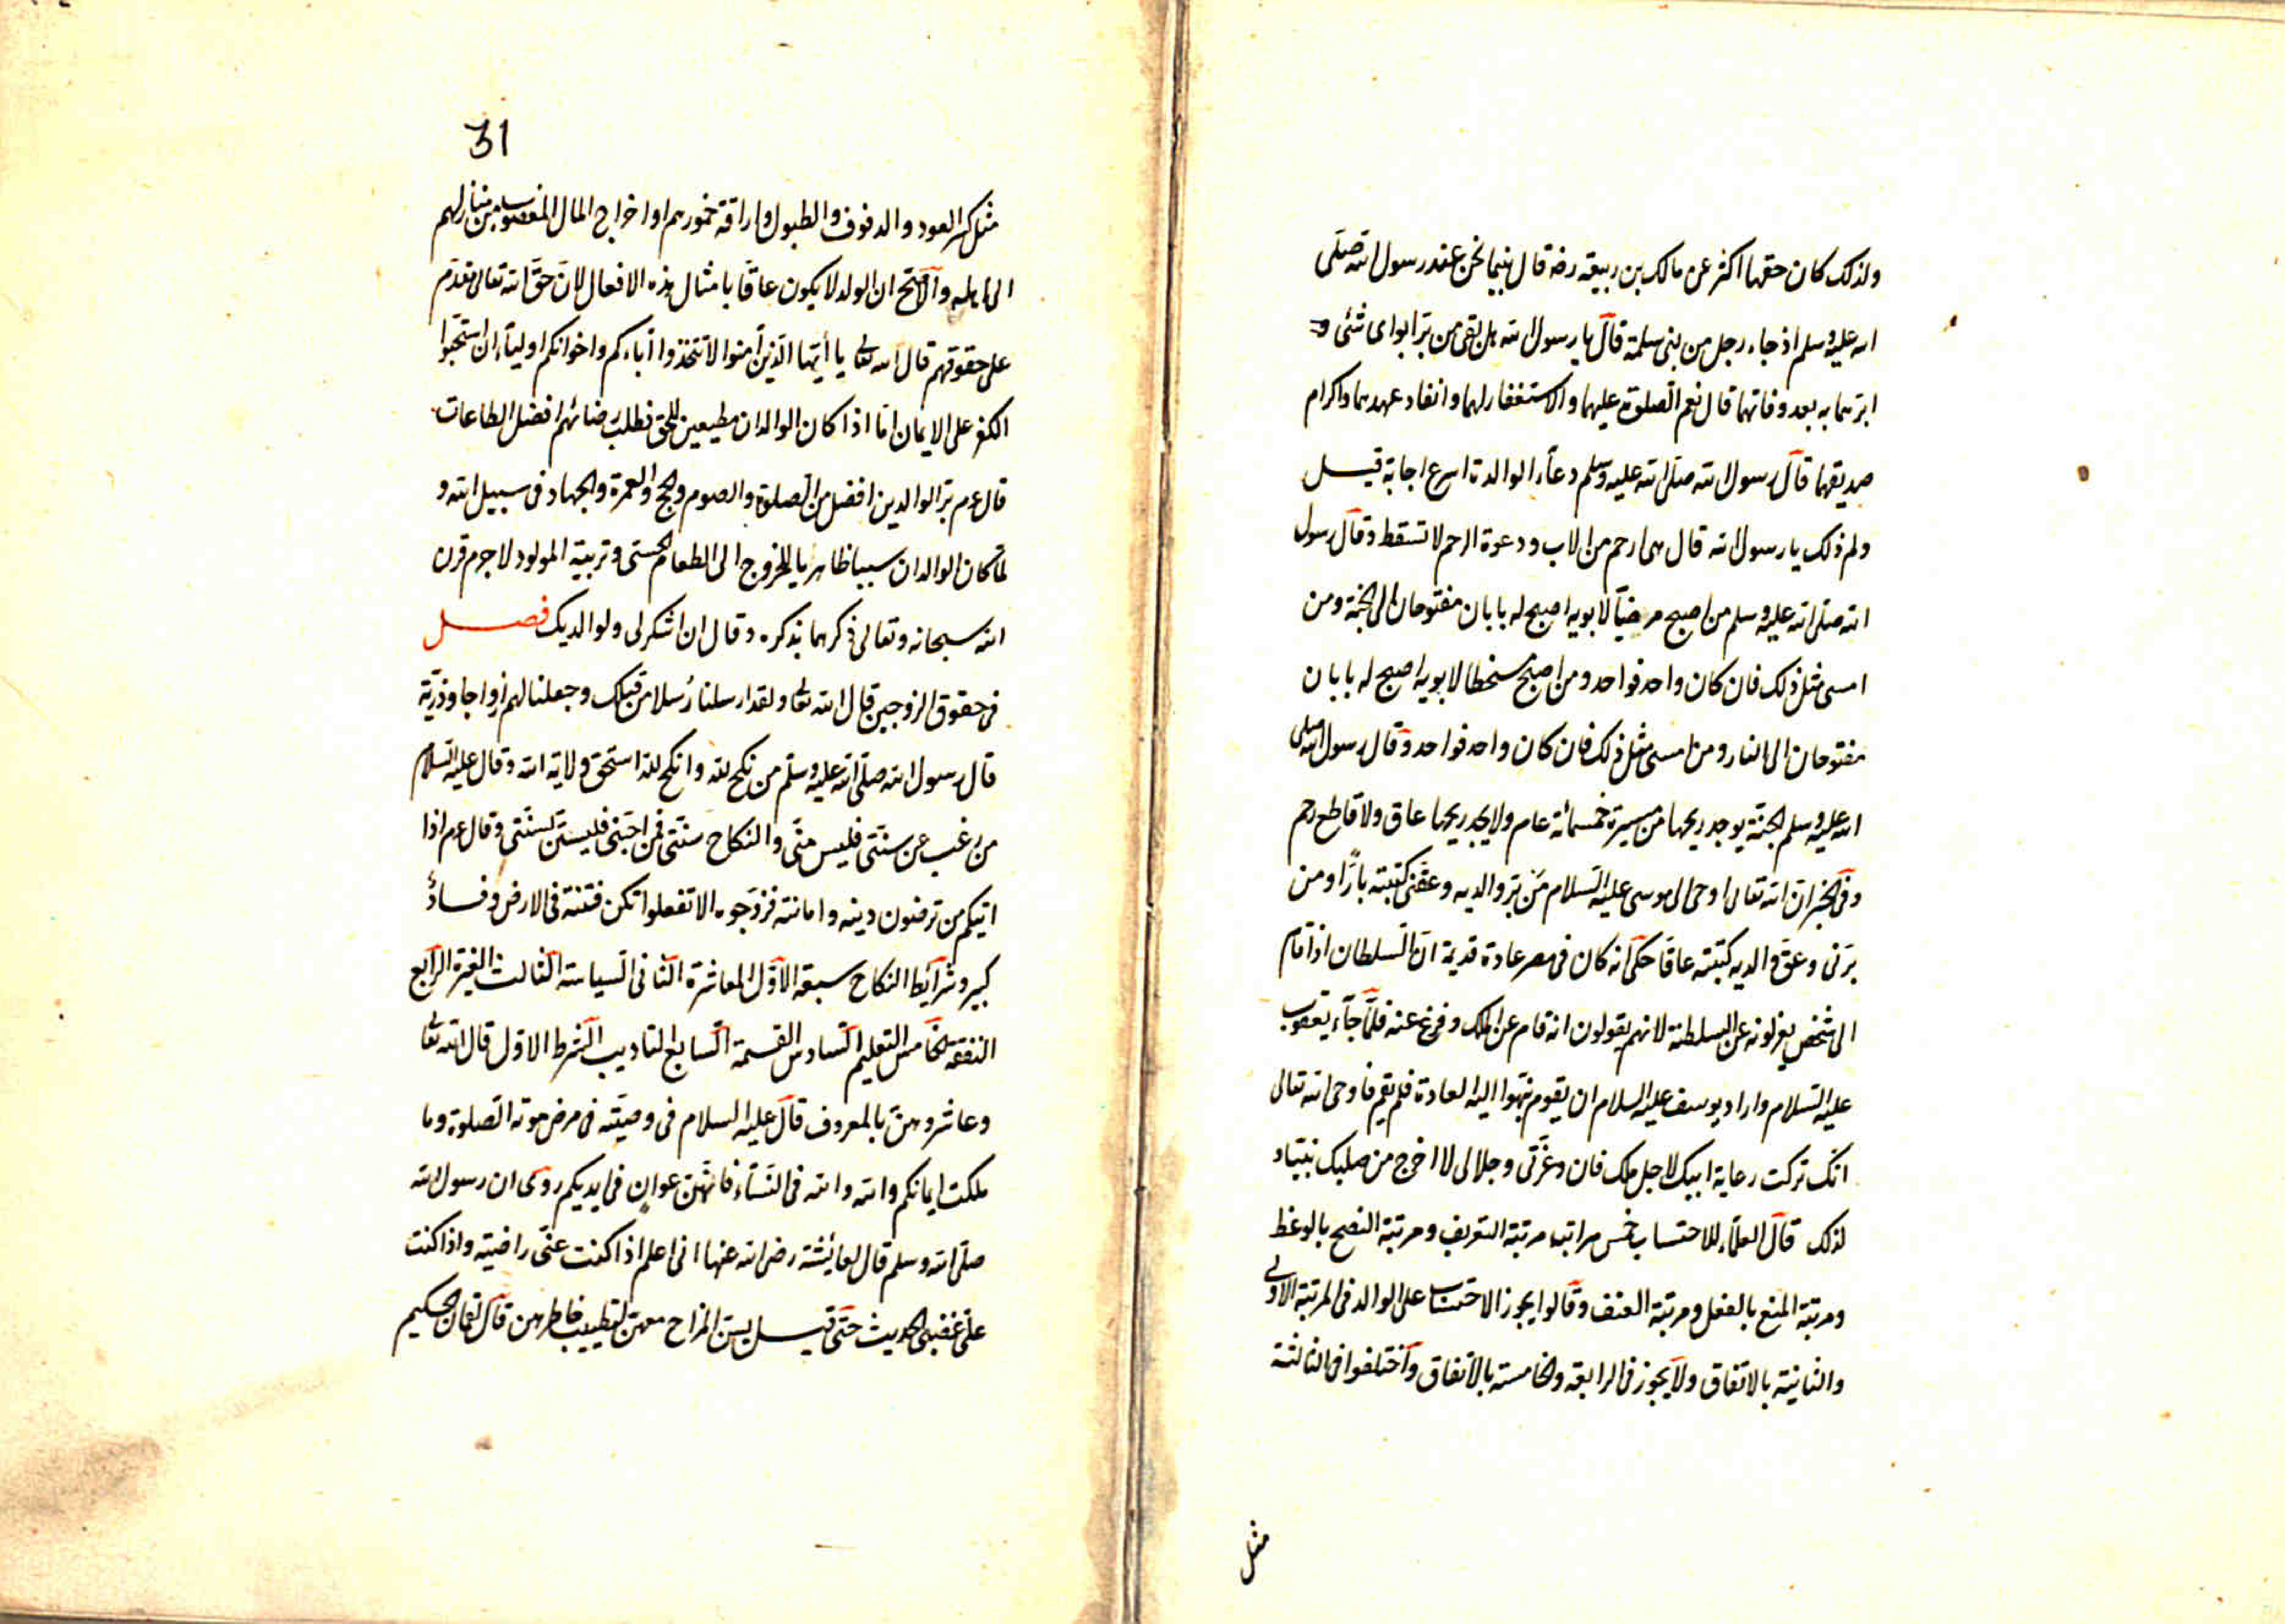 ولذلك كان حقها اكثر عن مالك بن ربيعة رضه قال بينما نحن عند رسول الله صلى
الله عليه وسلم اذ جاء رجل من بنى سلمة قال يا رسول الله هل بقى من بر ابواى شئى
ابرهما به بعد وفاتهما قال نعم الصلوة عليهما والاستغفار لهما وانفاد عهدهما واكرام
صديقهما قال رسول الله صلى الله عليه وسلم دعاء الوالدة اسرع اجابة قيل
ولم ذلك يا رسول الله قال هى ارحم من الاب ودعوة الرحم لا تسقط وقال رسول
الله صلى الله عليه وسلم من اصبح مرضيا لابويه اصبح له بابان مفتوحان الى الجنة ومن
امسى مثل ذلك فان كان واحد فواحد ومن اصبح مسخطا لابويه اصبح له بابان
مفتوحان الى النار ومن امسى مثل ذلك فان كان واحد فواحد وقال رسول الله صلى
الله عليه وسلم الجنة يوجد ريحها من مسيرة خمسمائة عام ولا يجد ريحها عاق ولا قاطع رحم
وفى الخبر ان الله تعالى اوحى الى موسى عليه السلام من بر والديه وعقنى كتبته بارا ومن
برنى وعق والديه كتبته عاقا حكى انه كان فى مصر عادة قديمة ان السلطان اذا قام
الى شخص يعزلونه عن السلطنة لانهم يقولون انه قام عن الملك وفرغ عنه فلما جاء يعقوب
عليه السلام واراد يوسف عليه السلام ان يقوم نبهوا اليه العادة فلم يقم فاوحى الله تعالى
انك تركت رعاية ابيك لاجل ملك فان وعزتى وجلالى لا اخرج من صلبك نبيا و
لذلك قال العلماء للاحتساب خمس مراتب مرتبة التعريف ومرتبة النصح بالوعظ
ومرتبة المنع بالفعل ومرتبة العنف وقالوا يجوز الاحتساب على الوالد فى المرتبة الاولى
والثانية بالاتفاق ولا يجوز فى الرابعة والخامسة بالاتفاق واختلفوا فى الثالثة
مثل
31
مثل كسر العود والدفوف والطبول واراقة خمورهم او اخراج المال المغصوب من منازلهم
الى اهله والاصح ان الولد لا يكون عاقا بامثال هذه الافعال لان حق الله تعالى مقدم
على حقوقهم قال الله تعالى يا ايها الذين آمنوا لا تتخذوا آباءكم واخوانكم اولياء ان استحبوا
الكفر على الايمان اما اذا كان الوالدان مطيعين للحق فطلب رضائهم افضل الطاعات
قال عم بر الوالدين افضل من الصلوة والصوم والحج والعمرة والجهاد فى سبيل الله و
لما كان الوالدان سببا ظاهريا للخروج الى الطعام الحسى وتربية المولود لا جرم قرن
الله سبحانه وتعالى ذكرهما بذكره وقال ان اشكر لى ولوالديك فصل
فى حقوق الزوجين قال الله تعالى ولقد ارسلنا رسلا من قبلك وجعلنا لهم ازواجا وذرية
قال رسول الله صلى الله عليه وسلم من نكح لله وانكح لله استحق ولاية الله وقال عليه السلام
من رغب عن سنتى فليس منى والنكاح سنتى فمن احبنى فليستن بسنتى وقال عم اذا
اتيكم من ترضون دينه وامانته فزوجوه الا تفعلوا تكن فتنة فى الارض وفساد
كبير وشرائط النكاح سبعة الاول المعاشرة الثانى السياسة الثالث الغيرة الرابع
النفقة الخامس التعليم السادس القسمة السابع التاديب الشرط الاول قال الله تعالى
وعاشروهن بالمعروف قال عليه السلام فى وصيته فى مرض موته الصلوة وما
ملكت ايمانكم والله والله فى النساء فانهن عوان فى ايديكم روى ان رسول الله
صلى الله وسلم قال لعائشة رضى الله عنها انى اعلم اذا كنت عنى راضية واذا كنت
على غضبى الحديث حتى قيل يسن المزاح معهن لتطييب خاطرهن قال لقمان الحكيم